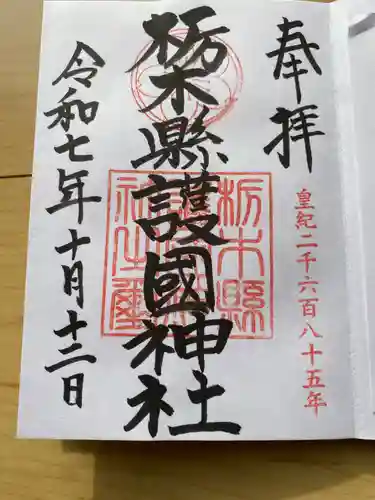 奉拝
皇紀二千六百八十五年
栃木縣護國神社
栃木縣
令和七年十月十二日